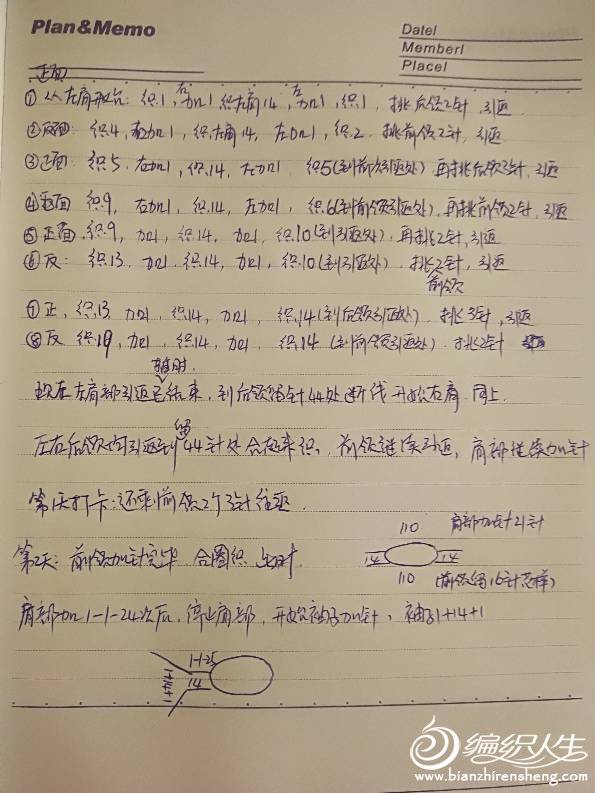 Plan&Memo
Datel
Memberl
Placel
正面
① 从左肩开始: 织1, 右加1 织左肩14, 左加1, 织1, 挑后领2针, 引返
② 反面: 织4, 右加1, 织左肩14, 左加1, 织2, 挑前领2针, 引返
③ 正面: 织5, 右加1, 织14, 左加1, 织5(到前次引返处) 再挑后领3针, 引返
④ 反面 织9, 右加1, 织14, 左加1, 织6(到前领引返处), 再挑前领2针, 引返
⑤ 正面, 织9, 加1, 织14, 加1, 织10(到引返处), 再挑2针, 引返
⑥ 反: 织13, 加1, 织14, 加1, 织10(到引返处), 挑2针, 引返
前领
⑦ 正, 织13, 加1, 织14, 加1, 织14(到后领引返处), 挑3针, 引返
⑧ 反 织19, 加1, 织14, 加1, 织14 (到前领引返处), 挑2针
暂时
现在左肩部引返已结束, 到后领留针44处断线开始右肩 同上.
左右后领均引返到留44针处合起来织, 前领继续引返, 肩部继续加针
第1天打卡: 还剩前领2个3针往返
第2天: 前领加针完毕 合圈织
110 肩部加针21针
14 14
110 (前领留16针怎样)
肩部加1-1-24次后, 停止肩部, 开始袖子加针, 袖子1+14+1
1-1-25
14
1+14+1
编织人生
www.bianzhirensheng.com